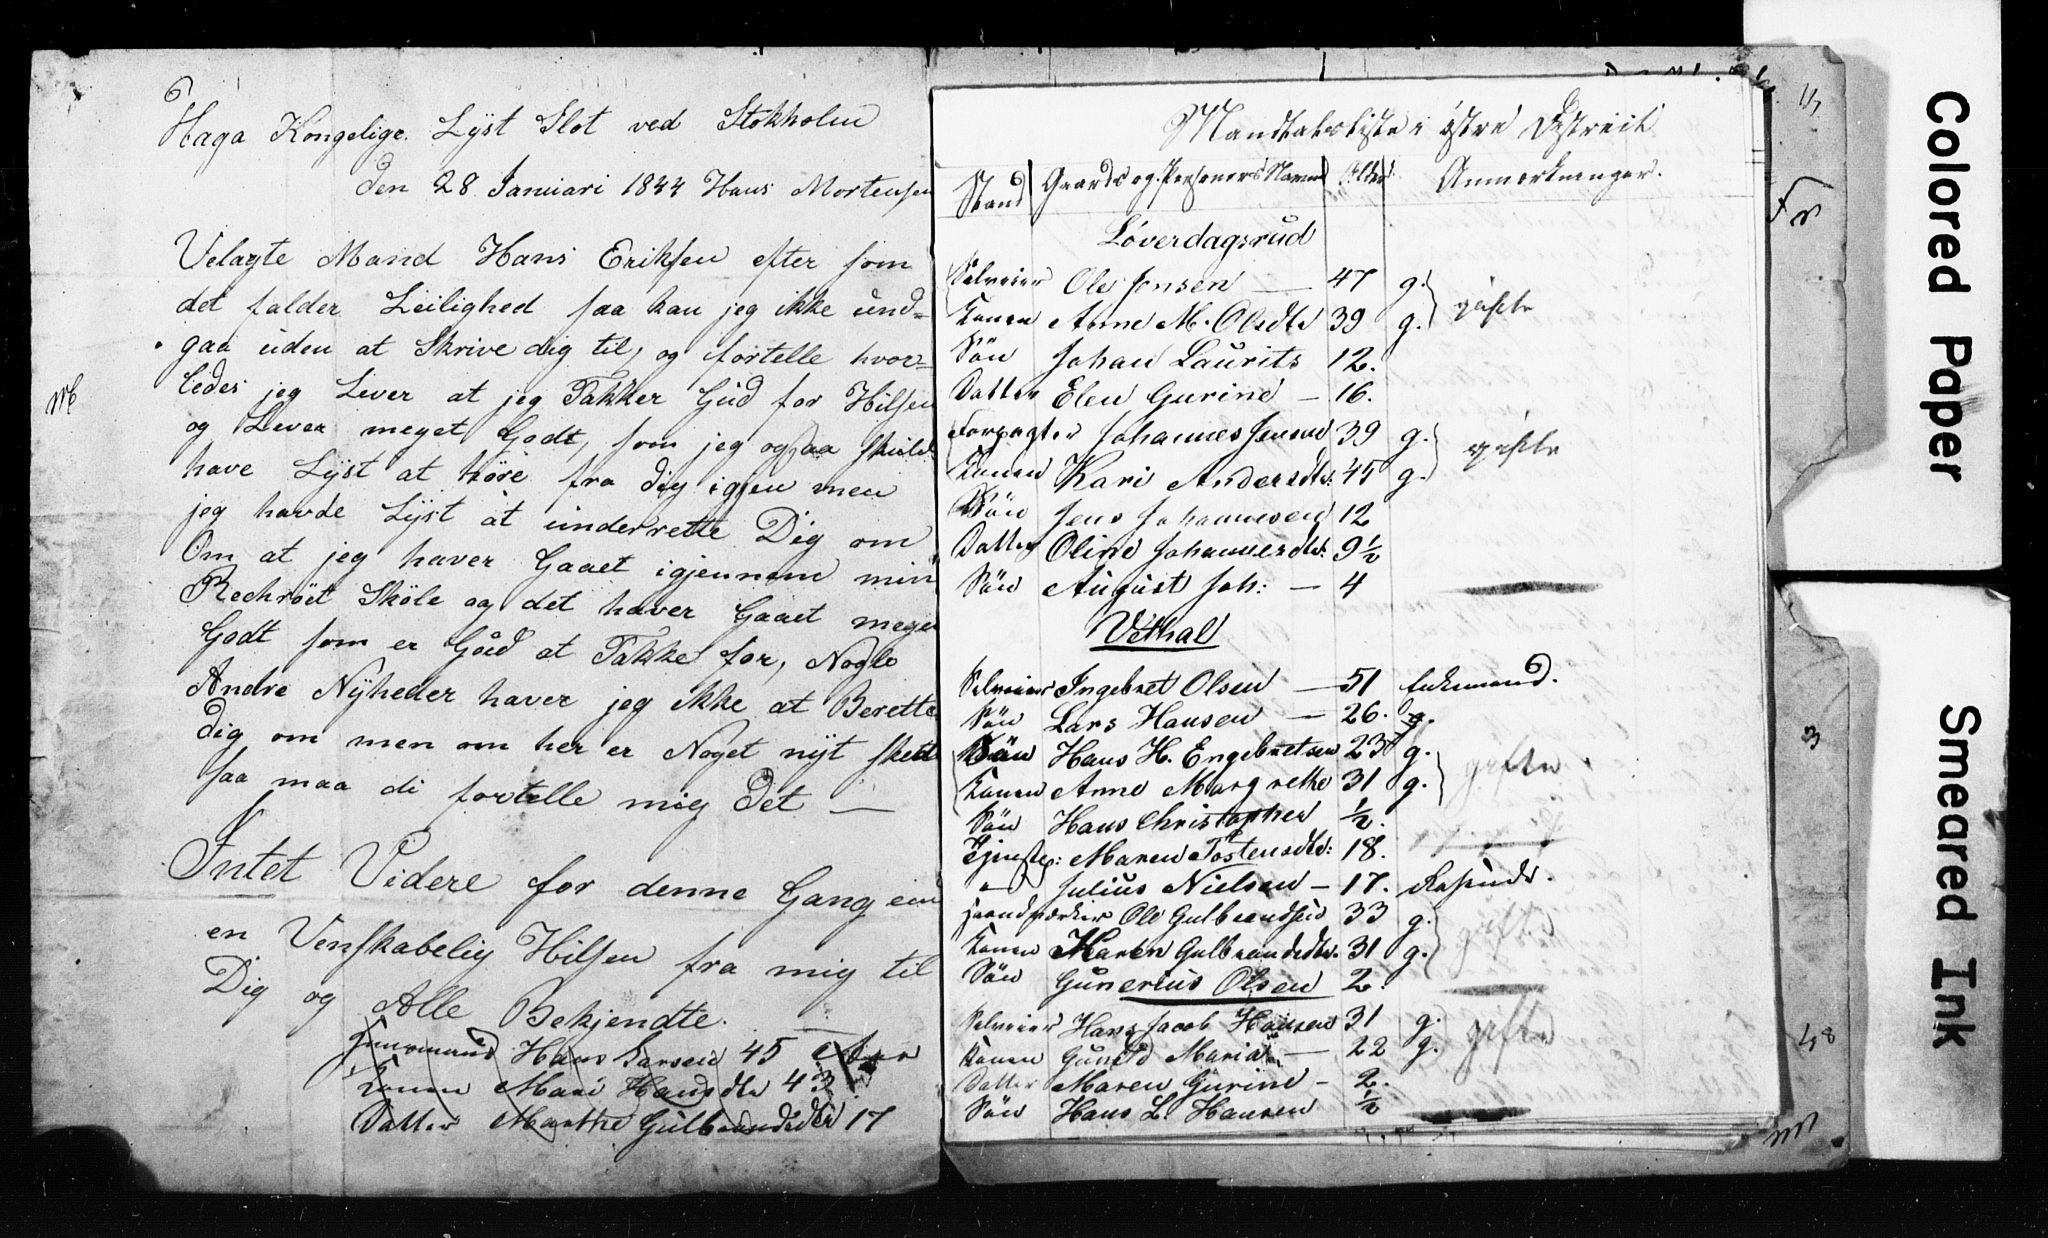 Haga Kongelige Lyst Slot ved Stokholm
den 28 Januari 1844 Hans Mortensen
Velagte Mand Hans Eriksen efter som
det falder Leilighed saa kan jeg ikke und-
gaa uden at Skrive dig til, og fortelle hvor-
ledes jeg Lever at jeg Takker Gud for Hilsen
og Lever meget Godt, som jeg ogsaa skulde
have Lyst at høre fra dig igjen men
jeg havde Lyst at underrette Dig om
Om at jeg haver Gaaet igjennem min
Rechrøet Skole og det haver Gaaet meget
Godt som er Gud at Takke for, Nogle
Andre Nyheder haver jeg ikke at Berette
Dig om men om her er Noget nyt skeed
saa maa di fortelle mig Det —
Intet Videre for denne Gang end
en Venskabelig Hilsen fra mig til
Dig og Alle Bekjendte.
Huusmand Hans Larsen 45
Konen Mari Hansdtr 43
Datter Marthe Gulbrandsdtr 17
Mandtalsliste i østre Distreict
Stand Gaards og Personers Navne Alder Anmerkninger.
Løverdagsrud
Selveier Ole Jensen — 47 g.
Konen Anne M. Olsdtr 39 g. gifte
Sön Johan Laurits 12.
Datter Elen Gurine — 16.
Forpagter Johannes Jensen 39 g.
Konen Kari Andersdtr. 45 g. gifte
Sön Jens Johannesen 12
Datter Oline Johannesdtr. 9½
Sön August Joh: — 4
Vethal
Selveier Ingebret Olsen — 51 Enkemand.
Sön Lars Hansen — 26. g.
Sön Hans H. Engebretsen 23 g.
Konen Anne Margrethe 31 g. gifte
Sön Hans Christopher ½.
Tjenste: Maren Tostensdtr: 18.
" Julius Nielsen — 17.
Haandverker Ole Gulbrandsen 33 g.
Konen Maren Gulbrandsdtr. 31 g. gifte
Sön Gunerius Olsen 2.
Selveier Hans Jacob Hansen 31 g.
Konen Gunild Maria — 22 g. gifte
Datter Maren Gurine — 2.
Sön Hans L. Hansen ½
Colored Paper
Smeared Ink